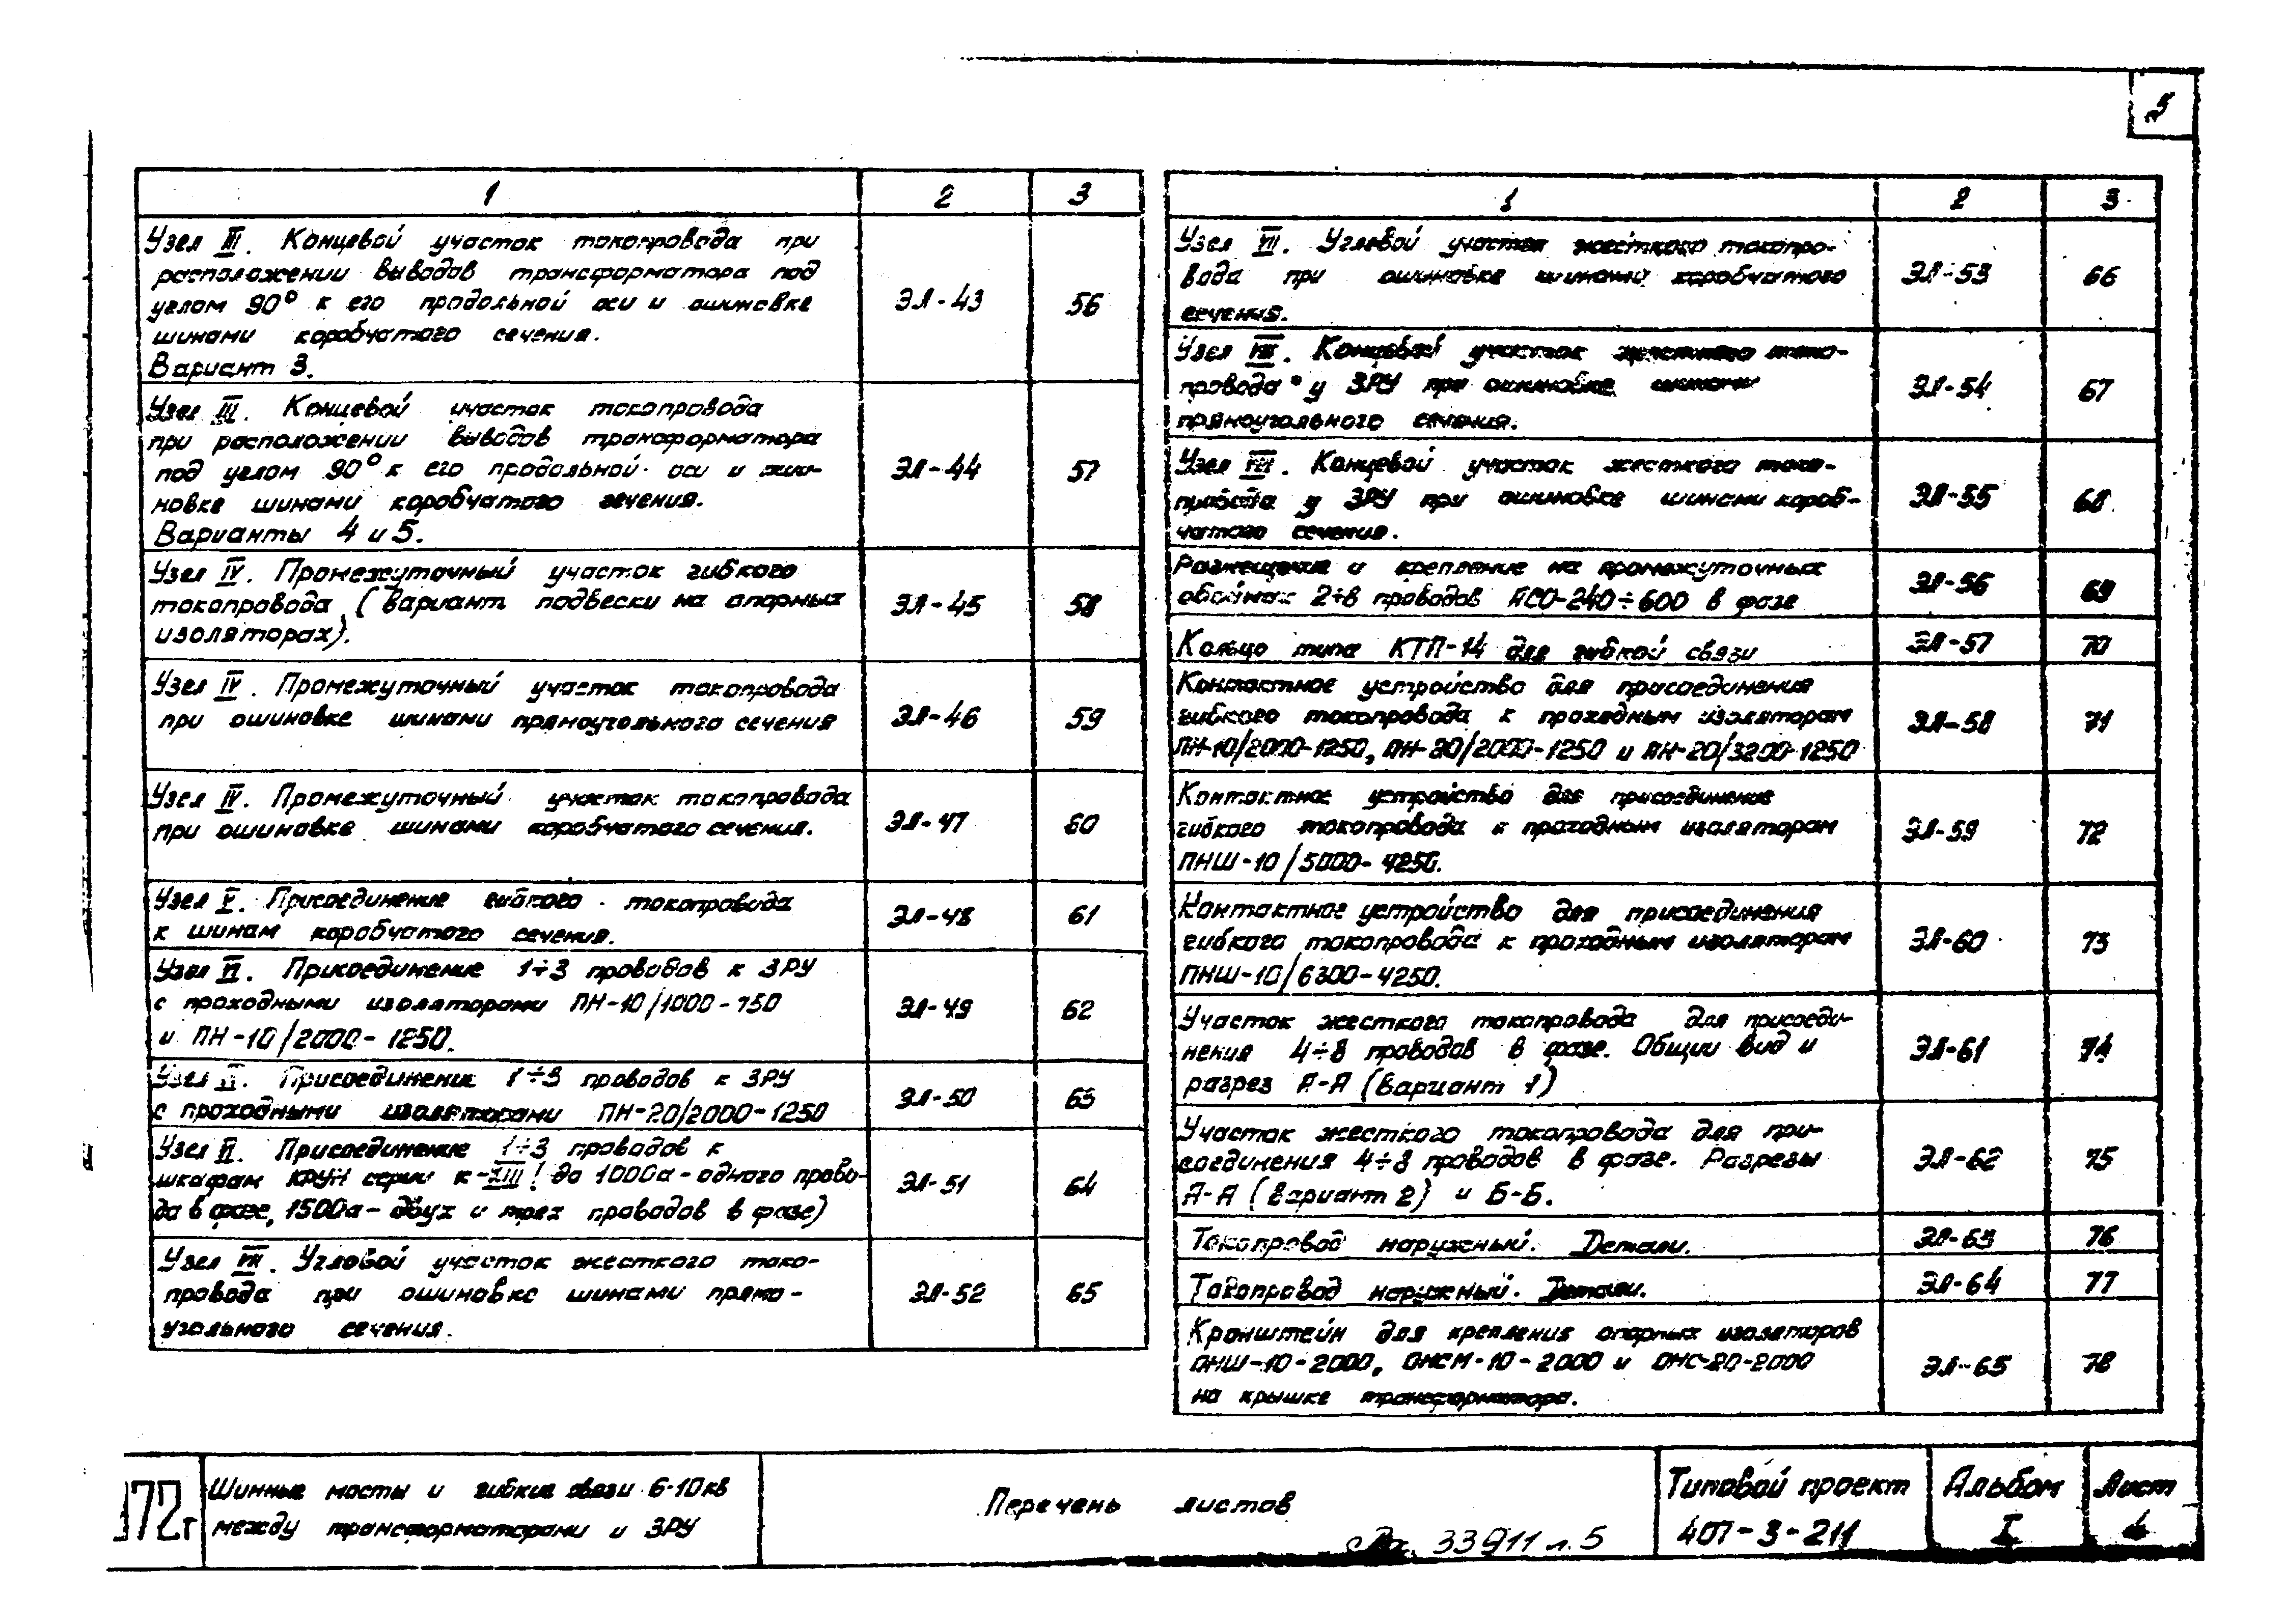 5
1 2 3
Узел III. Концевой участок токопровода при
расположении выводов трансформатора под
углом 90° к его продольной оси и ошиновке
шинами коробчатого сечения.
Вариант 3.
ЭЛ-43 56
Узел III. Концевой участок токопровода
при расположении выводов трансформатора
под углом 90° к его продольной оси и оши-
новке шинами коробчатого сечения.
Варианты 4 и 5.
ЭЛ-44 57
Узел IV. Промежуточный участок гибкого
токопровода (вариант подвески на опорных
изоляторах).
ЭЛ-45 58
Узел IV. Промежуточный участок токопровода
при ошиновке шинами прямоугольного сечения
ЭЛ-46 59
Узел IV. Промежуточный участок токопровода
при ошиновке шинами коробчатого сечения.
ЭЛ-47 60
Узел V. Присоединение гибкого токопровода
к шинам коробчатого сечения.
ЭЛ-48 61
Узел VI. Присоединение 1÷3 проводов к ЗРУ
с проходными изоляторами ПН-10/1000-750
и ПН-10/2000-1250.
ЭЛ-49 62
Узел VI. Присоединение 1÷3 проводов к ЗРУ
с проходными изоляторами ПН-20/2000-1250
ЭЛ-50 63
Узел VI. Присоединение 1÷3 проводов к
шкафам КРУН серии К-XIII (до 1000а-одного прово-
да в фазе, 1500а-двух и трех проводов в фазе)
ЭЛ-51 64
Узел VII. Угловой участок жесткого токо-
провода при ошиновке шинами прямо-
угольного сечения.
ЭЛ-52 65
1 2 3
Узел VII. Угловой участок жесткого токопро-
вода при ошиновке шинами коробчатого
сечения.
ЭЛ-53 66
Узел VIII. Концевой участок жесткого токо-
провода у ЗРУ при ошиновке шинами
прямоугольного сечения.
ЭЛ-54 67
Узел VIII. Концевой участок жесткого токо-
провода у ЗРУ при ошиновке шинами короб-
чатого сечения.
ЭЛ-55 68
Размещение и крепление на промежуточных
обоймах 2÷8 проводов АСО-240÷600 в фазе
ЭЛ-56 69
Кольцо типа КТП-14 для гибкой связи
ЭЛ-57 70
Контактное устройство для присоединения
гибкого токопровода к проходным изоляторам
ПН-10/2000-1250, ПН-20/2000-1250 и ПН-20/3200-1250
ЭЛ-58 71
Контактное устройство для присоединения
гибкого токопровода к проходным изоляторам
ПНШ-10/5000-4250.
ЭЛ-59 72
Контактное устройство для присоединения
гибкого токопровода к проходным изоляторам
ПНШ-10/6300-4250.
ЭЛ-60 73
Участок жесткого токопровода для присоеди-
нения 4÷8 проводов в фазе. Общий вид и
разрез А-А (вариант 1)
ЭЛ-61 74
Участок жесткого токопровода для при-
соединения 4÷8 проводов в фазе. Разрезы
А-А (вариант 2) и Б-Б.
ЭЛ-62 75
Токопровод наружный. Детали.
ЭЛ-63 76
Токопровод наружный. Детали.
ЭЛ-64 77
Кронштейн для крепления опорных изоляторов
ОНШ-10-2000, ОНСМ-10-2000 и ОНС-20-2000
на крышке трансформатора.
ЭЛ-65 78
172г
Шинные мосты и гибкие связи 6-10кв
между трансформаторами и ЗРУ
Перечень листов
33911 л.5
Типовой проект
407-3-211
Альбом
I
Лист
4